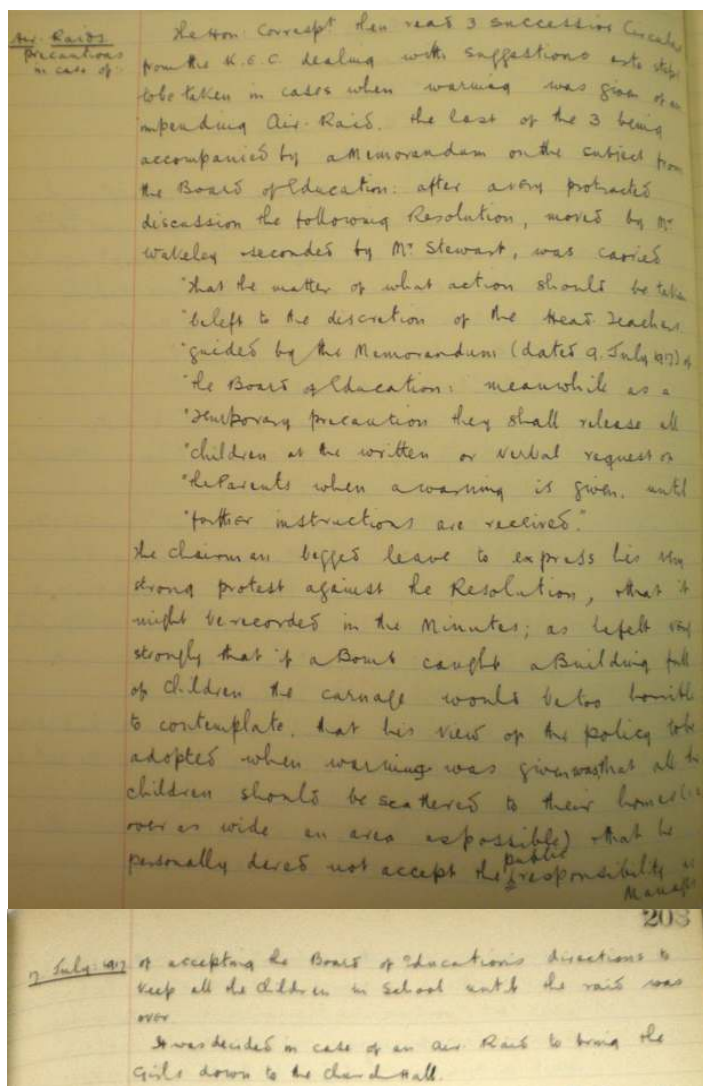 Air Raids
precautions
in case of:
The Hon: Correspt then read 3 successive Circulars
from the K.E.C. dealing with suggestions as to steps
to be taken in cases when warning was given of an
impending Air-Raid. the last of the 3 being
accompanied by a Memorandum on the subject from
the Board of Education: after a very protracted
discussion the following Resolution, moved by Mr
Wakeley & seconded by Mr Stewart, was carried
"that the matter of what action should be taken
"be left to the discretion of the Head Teachers
"guided by the Memorandum (dated 9. July 1917) of
"the Board of Education: meanwhile as a
"temporary precaution they shall release all
"children at the written or verbal request of
"the Parents when a warning is given. until
"further instructions are received."
The Chairman begged leave to express his very
strong protest against the Resolution, & that it
might be recorded in the Minutes; as he felt very
strongly that if a Bomb caught a Building full
of Children the carnage would be too horrible
to contemplate. that his view of the policy to be
adopted when warning was given was that all the
children should be scattered to their homes (i.e.
over as wide an area as possible) & that he
personally dared not accept the public responsibility as
Manager
203
July: 1917
of accepting the Board of Education's directions to
keep all the children in School until the raid was
over
It was decided in case of an Air Raid to bring the
Girls down to the Church Hall.